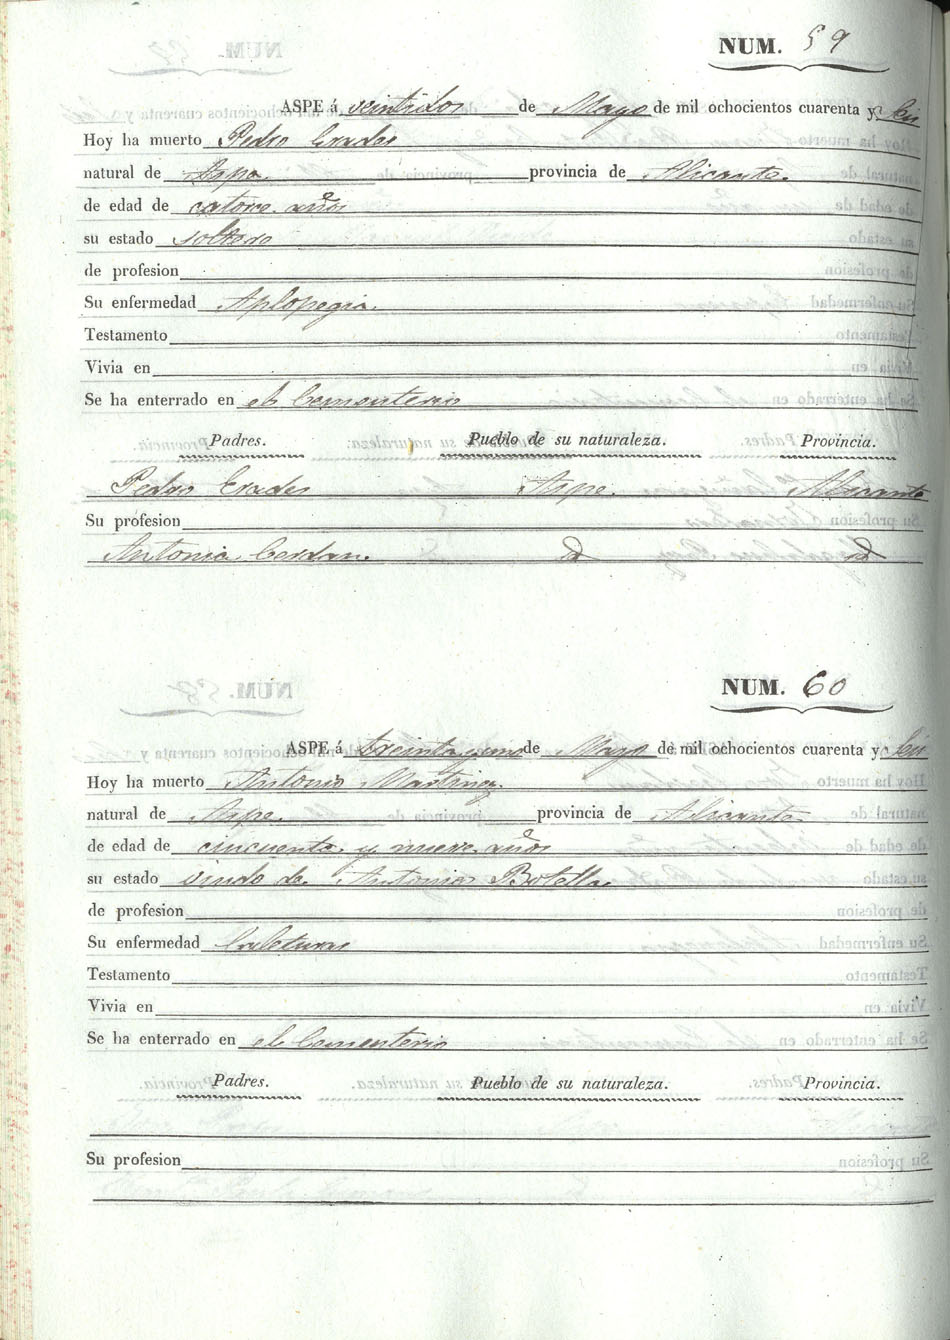 NUM. 59
ASPE á veintidos de Mayo de mil ochocientos cuarenta y
Hoy ha muerto Pedro Erades
natural de Aspe. provincia de Alicante.
de edad de catorce años
su estado soltero
de profesion
Su enfermedad Aplopegia.
Testamento
Vivia en
Se ha enterrado en el Cementerio
Padres. Pueblo de su naturaleza. Provincia.
Pedro Erades Aspe. Alicante
Su profesion
Antonia Cerdan. id id
NUM. 60
ASPE á treinta y uno de Mayo de mil ochocientos cuarenta y
Hoy ha muerto Antonio Martinez.
natural de Aspe. provincia de Alicante
de edad de cincuenta y nueve años
su estado viudo de Antonia Botella.
de profesion
Su enfermedad Calenturas
Testamento
Vivia en
Se ha enterrado en el Cementerio
Padres. Pueblo de su naturaleza. Provincia.
Su profesion